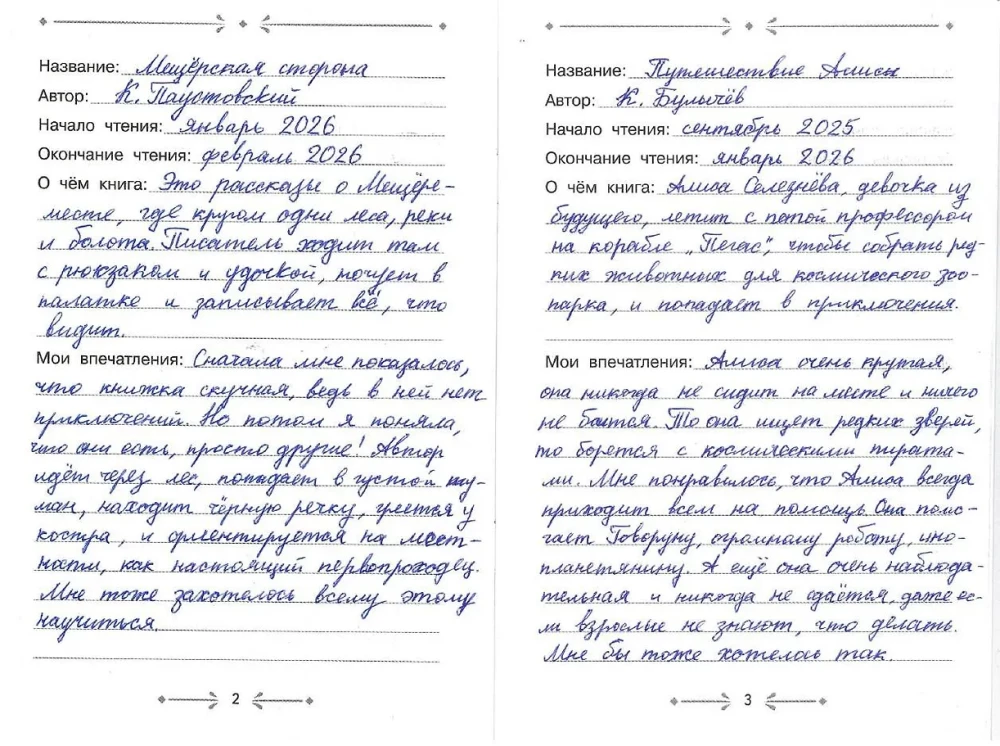 Название: Мещёрская сторона
Автор: К. Паустовский
Начало чтения: январь 2026
Окончание чтения: февраль 2026
О чём книга: Это рассказы о Мещёре-
месте, где кругом одни леса, реки
и болота. Писатель ходит там
с рюкзаком и удочкой, ночует в
палатке и записывает всё, что
видит.
Мои впечатления: Сначала мне показалось,
что книжка скучная, ведь в ней нет
приключений. Но потом я поняла,
что они есть, просто другие! Автор
идёт через лес, попадает в густой ту-
ман, находит чёрную речку, греется у
костра, и ориентируется на мест-
ности, как настоящий первопроходец.
Мне тоже захотелось всему этому
научиться.
2
Название: Путешествие Алисы
Автор: К. Булычёв
Начало чтения: сентябрь 2025
Окончание чтения: январь 2026
О чём книга: Алиса Селезнёва, девочка из
будущего, летит с папой профессором
на корабле „Пегас", чтобы собрать ред-
ких животных для космического зоо-
парка, и попадает в приключения.
Мои впечатления: Алиса очень крутая,
она никогда не сидит на месте и ничего
не боится. То она ищет редких зверей,
то борется с космическими пирата-
ми. Мне понравилось, что Алиса всегда
приходит всем на помощь. Она помо-
гает Говоруну, огромному роботу, ино-
планетянину. А ещё она очень наблюда-
тельная и никогда не сдаётся, даже ес-
ли взрослые не знают, что делать.
Мне бы тоже хотелось так.
3